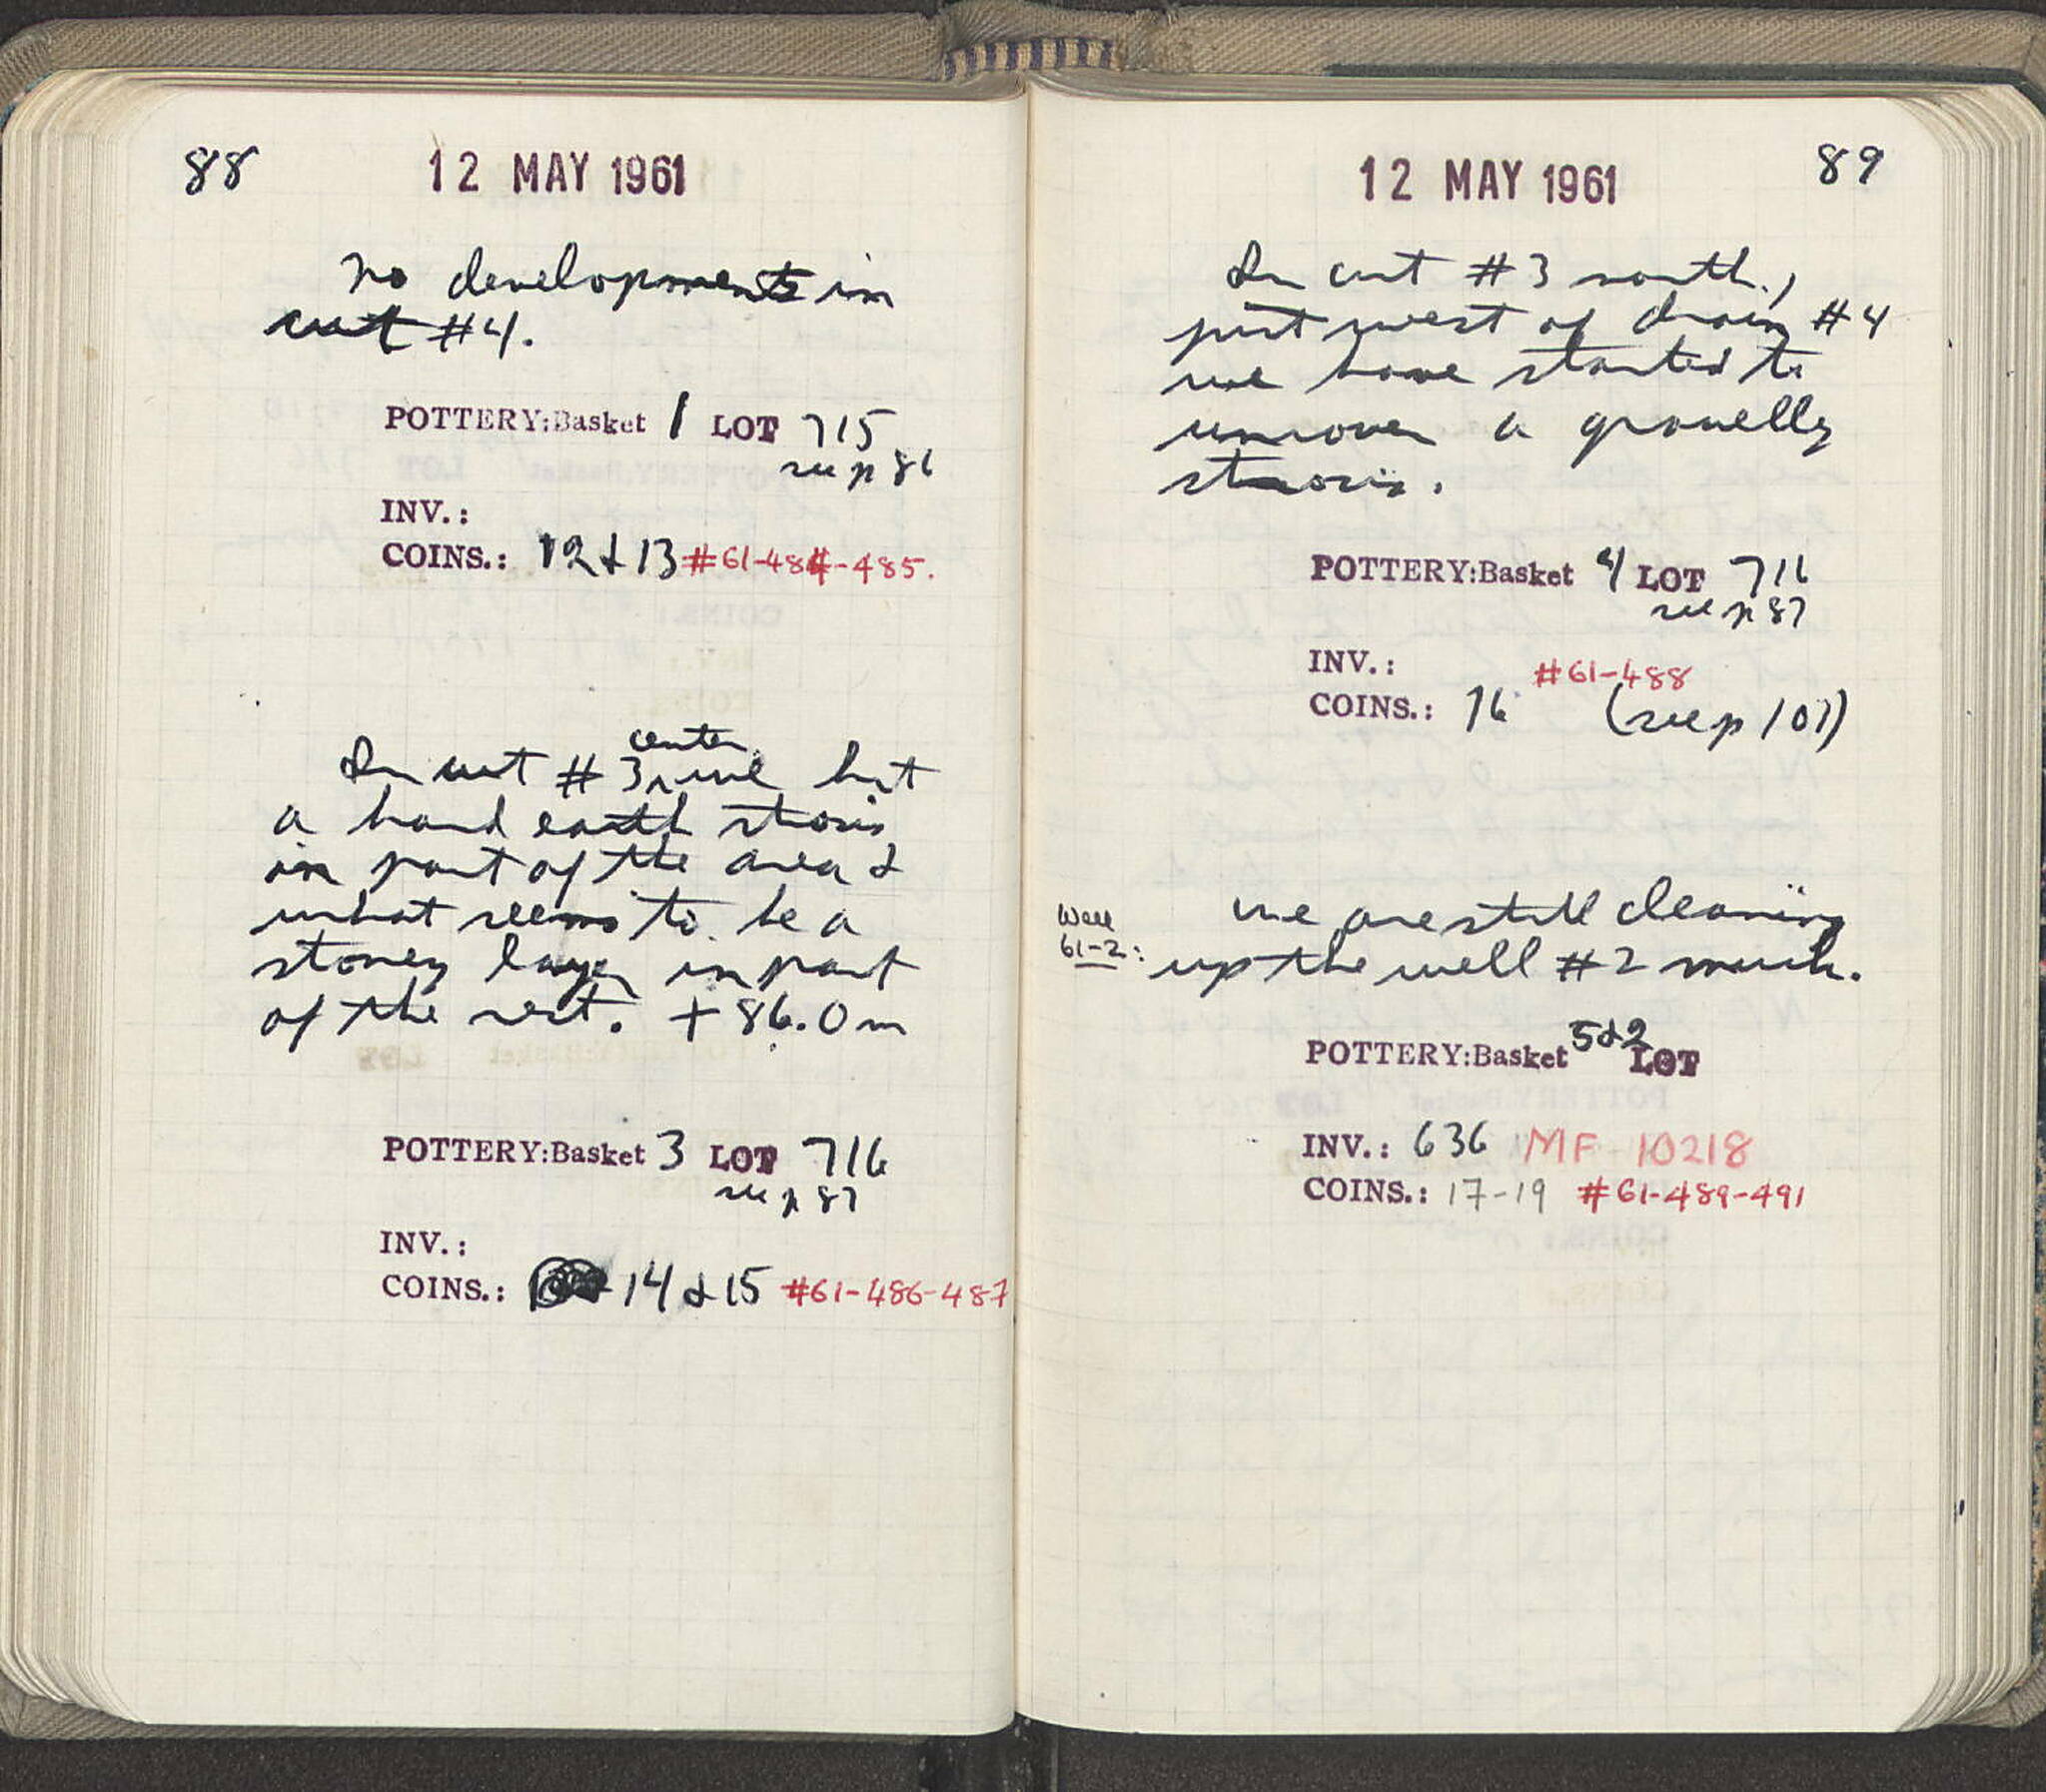 88
12 MAY 1961
No developments in
cut #4.
POTTERY:Basket 1 LOT 715
see p 86
INV.:
COINS.: 12 & 13 #61-484-485.
center
In cut #3 we hit
a hard earth strosis
in part of the area &
what seems to be a
stoney layer in part
of the rest. + 86.0 m
POTTERY:Basket 3 LOT 716
see p 87
INV.:
COINS.: 14 & 15 #61-486-487
12 MAY 1961
89
In cut #3 north,
just west of drain #4
we have started to
uncover a gravelly
strosis.
POTTERY:Basket 4 LOT 716
see p 87
INV.:
#61-488
COINS.: 16 (see p 101)
Well
61-2:
we are still cleaning
up the well #2 much.
POTTERY:Basket 5&2 LOT
INV.: 636 MF 10218
COINS.: 17-19 #61-489-491